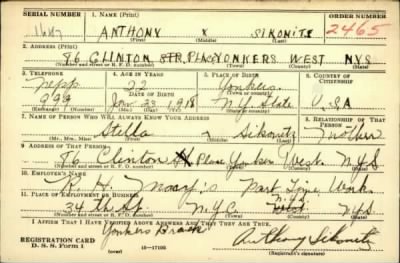 SERIAL NUMBER 1. NAME (Print) ORDER NUMBER
ANTHONY X SIKONITZ 2465
(First) (Middle) (Last)
2. ADDRESS (Print)
86 CLINTON STR, PLACE YONKERS WEST NYS
(Number and street or R. F. D. number) (Town) (County) (State)
3. TELEPHONE 4. AGE IN YEARS 5. PLACE OF BIRTH 6. COUNTRY OF CITIZENSHIP
22 Yonkers
DATE OF BIRTH
Jan 23 1918 N.Y. State U.S.A
(Exchange) (Number) (Mo.) (Day) (Yr.) (State or country)
7. NAME OF PERSON WHO WILL ALWAYS KNOW YOUR ADDRESS 8. RELATIONSHIP OF THAT PERSON
Stella Sikonitz Mother
(Mr., Mrs., Miss) (First) (Middle) (Last)
9. ADDRESS OF THAT PERSON
86 Clinton Place Yonkers West. N.Y.S
(Number and street or R. F. D. number) (Town) (County) (State)
10. EMPLOYER'S NAME
R. H. Macy's Part Time Work
11. PLACE OF EMPLOYMENT OR BUSINESS
34th St. N.Y.C. N.Y.S
(Number and street or R. F. D. number) (Town) (County) (State)
I AFFIRM THAT I HAVE VERIFIED ABOVE ANSWERS AND THAT THEY ARE TRUE.
Yonkers Anthony Sikonitz
REGISTRATION CARD
D. S. S. Form 1 (over) 16—17105 (Registrant's signature)